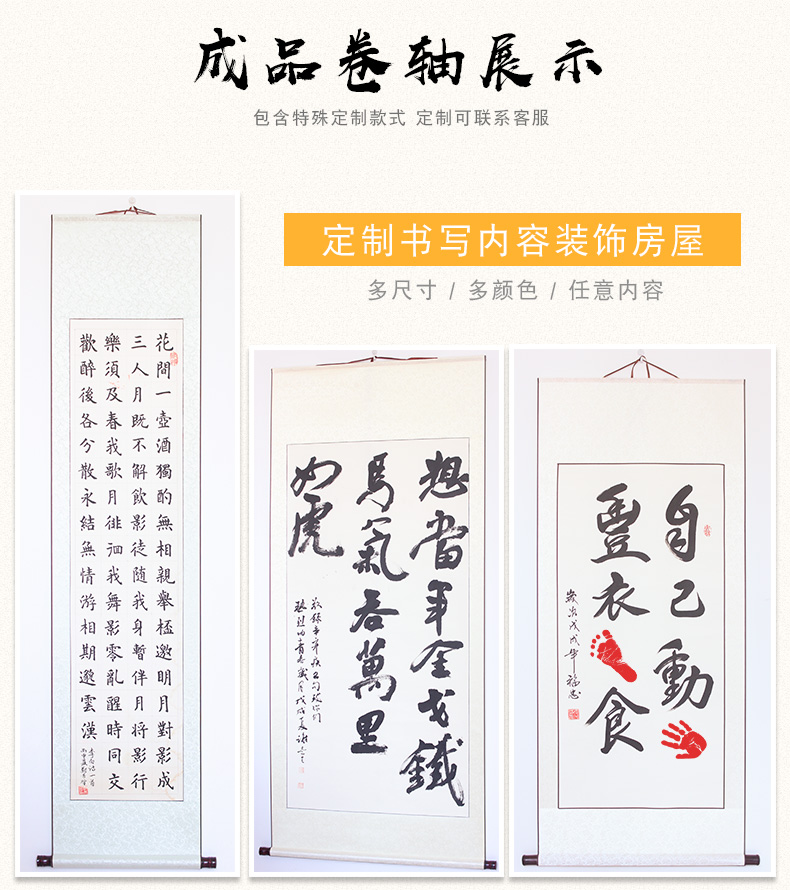 成品卷轴展示
包含特殊定制款式 定制可联系客服
定制书写内容装饰房屋
多尺寸 / 多颜色 / 任意内容
花間一壺酒獨酌無相親舉杯邀明月對影成
三人月既不解飲影徒隨我身暫伴月將影行
樂須及春我歌月徘徊我舞影零亂醒時同交
歡醉後各分散永結無情游相期邈雲漢
想當年金戈鐵
馬氣吞萬里
如虎
自己動
豐衣
食